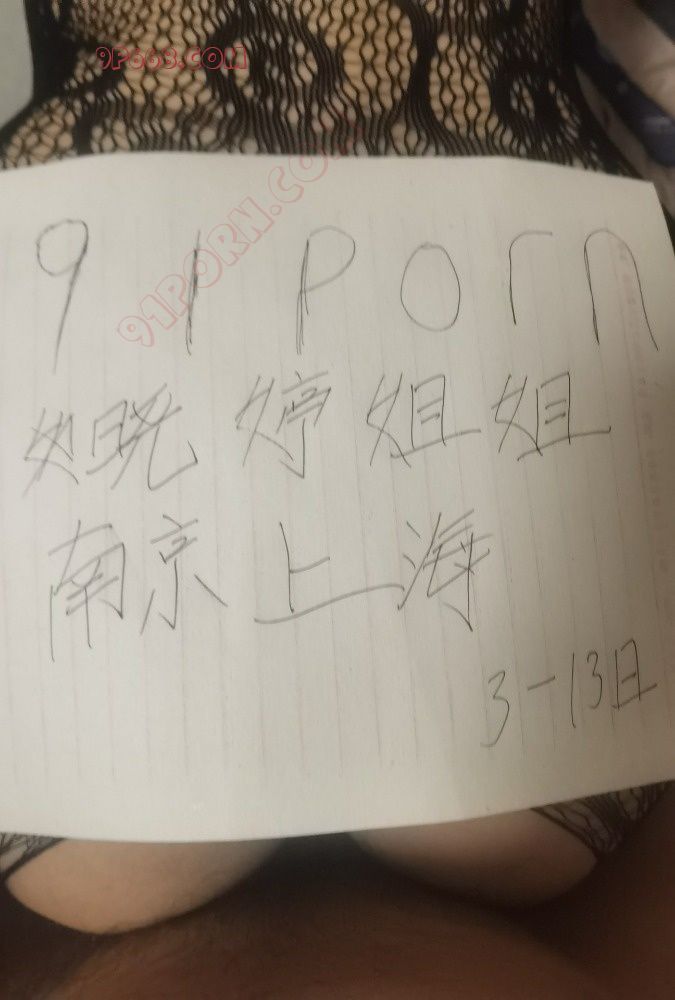 9P668.COM
91PORN.COM
91porn
晓婷姐姐
南京上海
3-13日